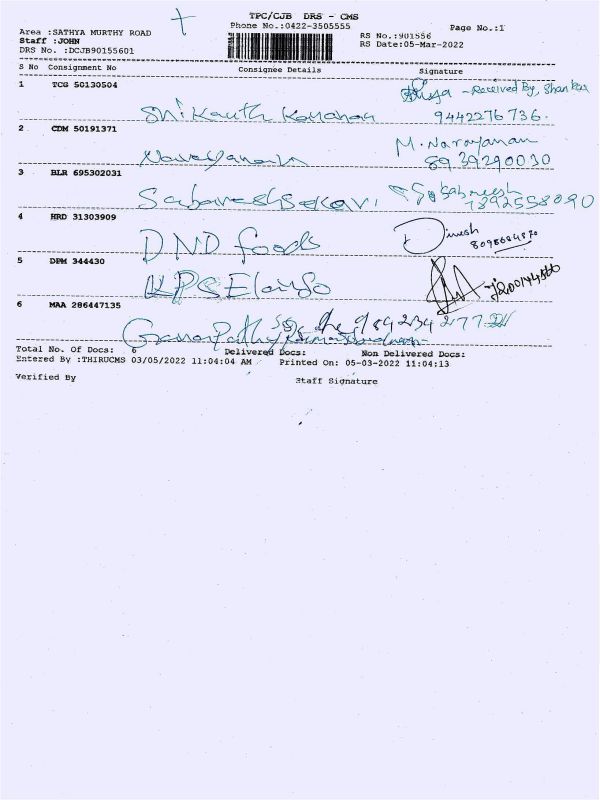 TPC/CJB DRS - CMS
Phone No.:0422-3505555 Page No.:1
Area :SATHYA MURTHY ROAD
Staff :JOHN RS No.:901556
DRS No. :DCJB90155601 RS Date:05-Mar-2022
S No Consignment No Consignee Details Signature
1 TCG 50130504 - Received By, Shankar
9442276736.
2 CDM 50191371 M. Narayanan
Narayanan 8939290030
3 BLR 695302031
7892558090
4 HRD 31303909 Dinesh
DND foods
5 DPM 344430
KPS
6 MAA 286447135
Total No. Of Docs: 6 Delivered Docs: Non Delivered Docs:
Entered By :THIRUCMS 03/05/2022 11:04:04 AM Printed On: 05-03-2022 11:04:13
Verified By Staff Signature